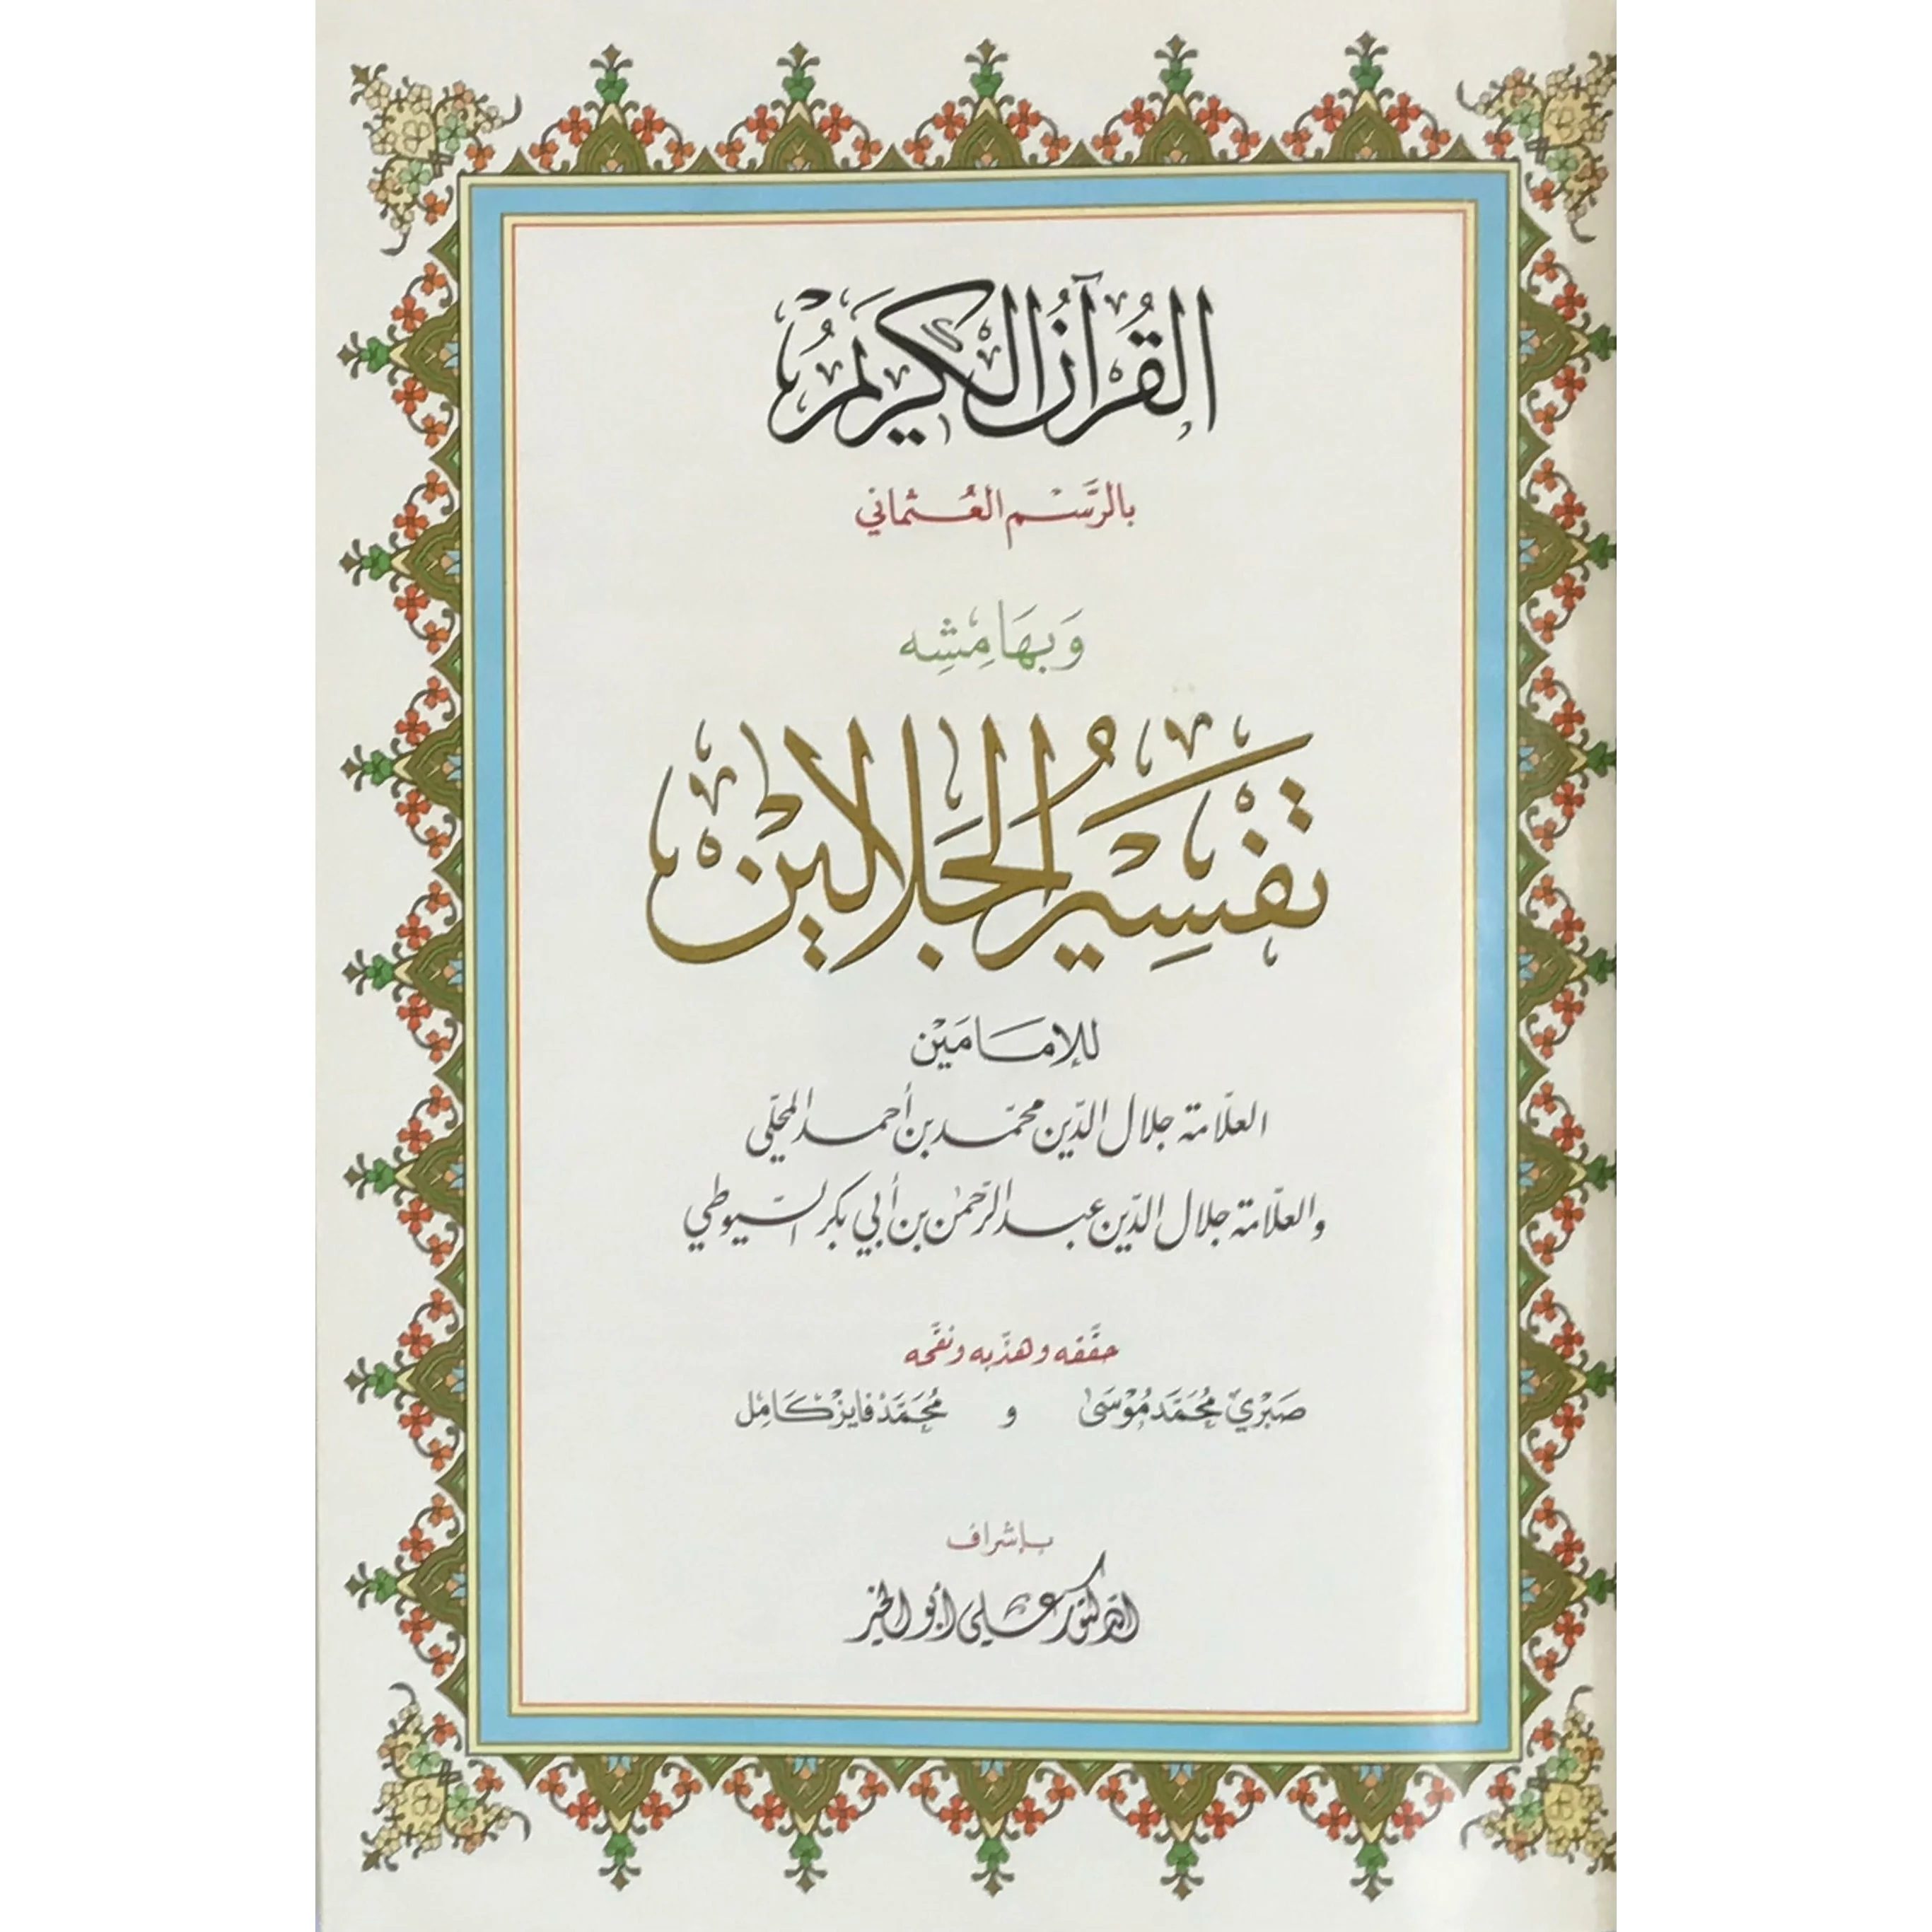 القُرآنُ الكَرِيمُ
بالرَّسْمِ العُثماني
وَبِهَامِشِه
تَفْسِيرُ الجَلالَيْن
للإمَامَيْن
العلّامة جلال الدّين محمّد بن أحمد المحلّي
والعلّامة جلال الدّين عبد الرّحمٰن بن أبي بكر السّيوطي
حقّقه وهذّبه ونقّحه
صَبْرِي مُحَمَّد مُوْسَىٰ و مُحَمَّد فَايز كَامِل
بإشراف
الدكتور علي أبو الخير